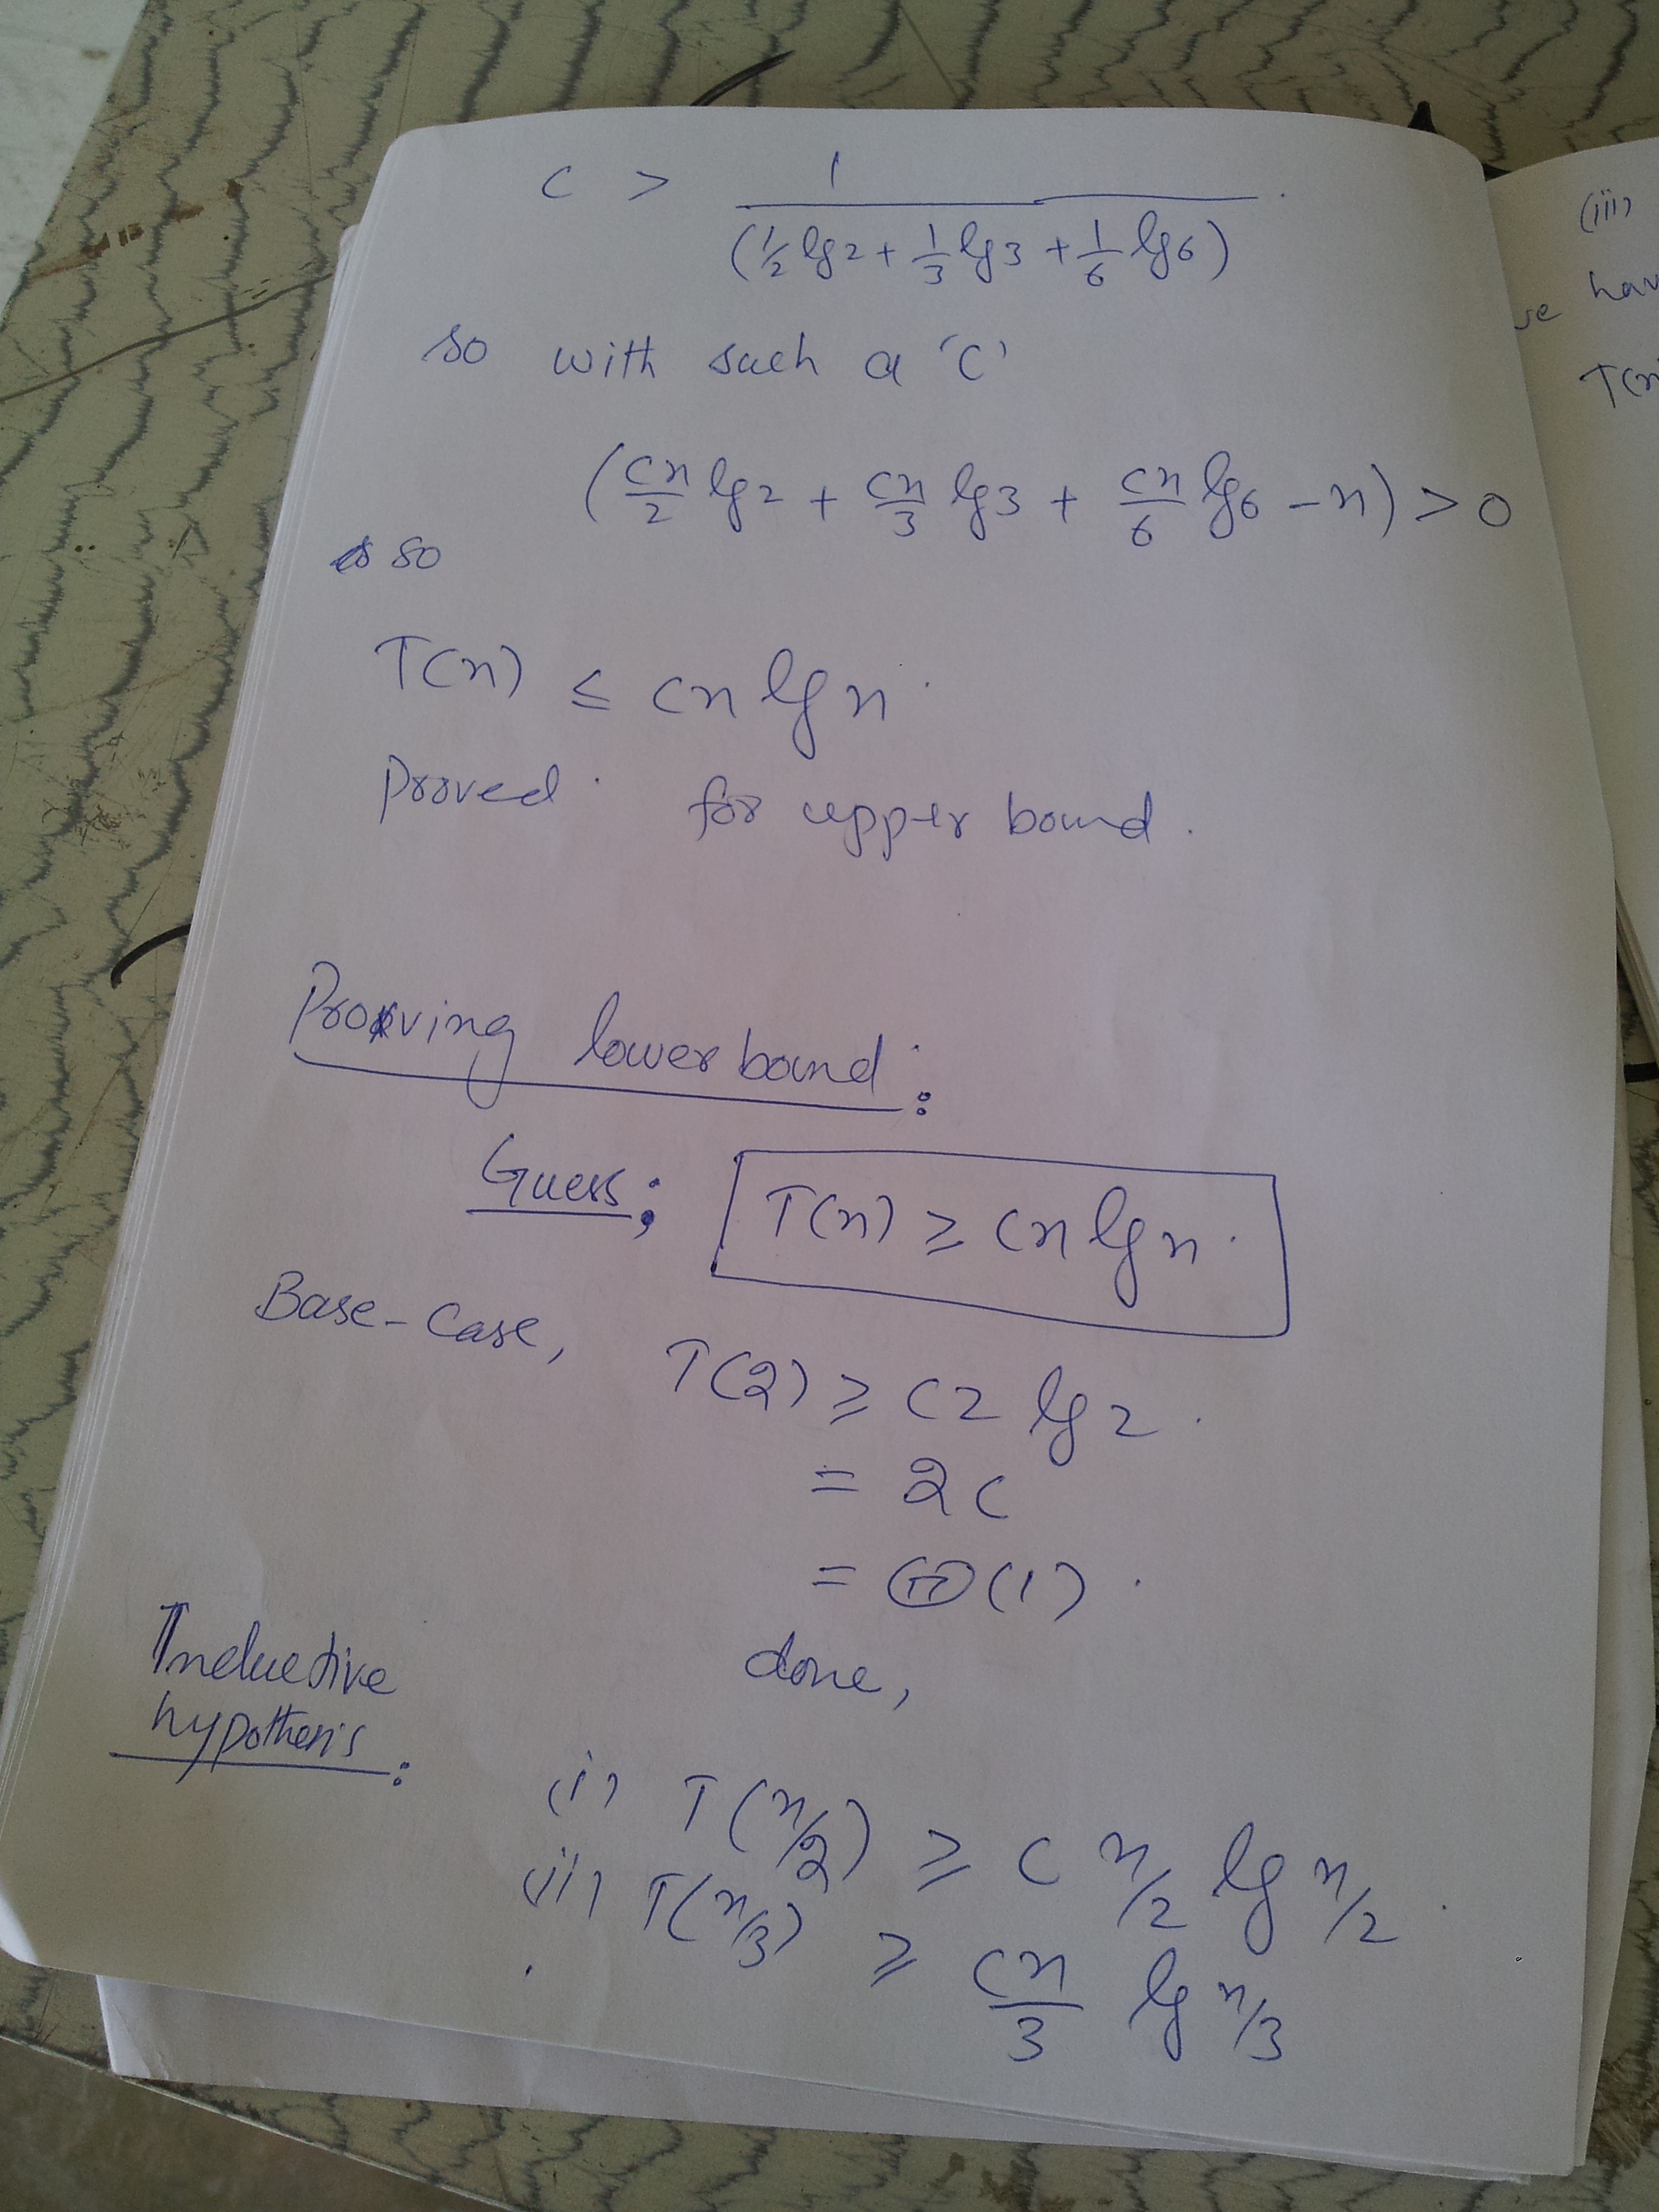 c > 1 / (1/2 lg2 + 1/3 lg3 + 1/6 lg6)
so with such a 'c'
(cn/2 lg2 + cn/3 lg3 + cn/6 lg6 - n) > 0
so
T(n) ≤ cn lg n.
proved for upper bound.
Proving lower bound:
Guess: T(n) ≥ cn lg n.
Base-Case, T(2) ≥ c2 lg 2.
= 2c
= Θ(1).
done,
Inductive
hypothesis:
(i) T(n/2) ≥ c n/2 lg n/2.
(ii) T(n/3) ≥ cn/3 lg n/3
(iii)
T(n